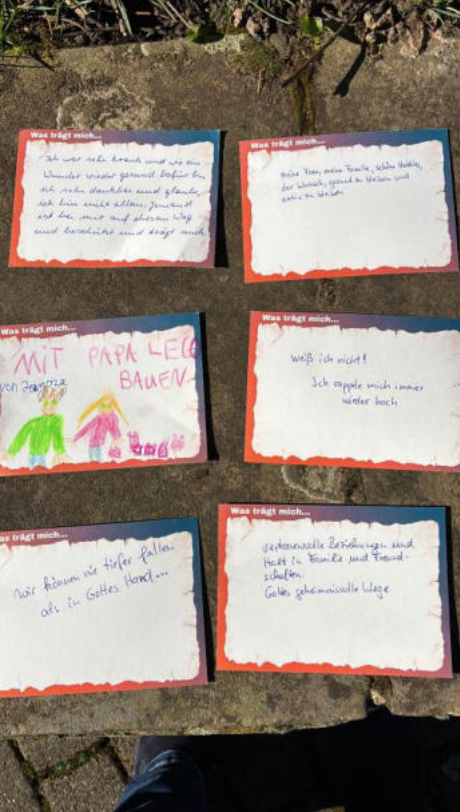 Was trägt mich...
Ich war sehr krank und wie ein
Wunder wieder gesund. Dafür bin
ich sehr dankbar und glaube,
ich bin nicht allein. Jemand
ist bei mir auf diesem Weg
und beschützt und trägt mich.
Was trägt mich...
meine Frau, meine Familie, schöne Hobbies,
der Wunsch, gesund zu bleiben und
aktiv zu bleiben
Was trägt mich...
MIT PAPA LEGO
von
BAUEN
Was trägt mich...
Weiß ich nicht!
Ick rapple mich immer
wieder hoch
Was trägt mich...
Wir können nie tiefer fallen
als in Gottes Hand...
Was trägt mich...
vertrauensvolle Beziehungen und
Halt in Familie und Freund-
schaften.
Gottes geheimnisvolle Wege